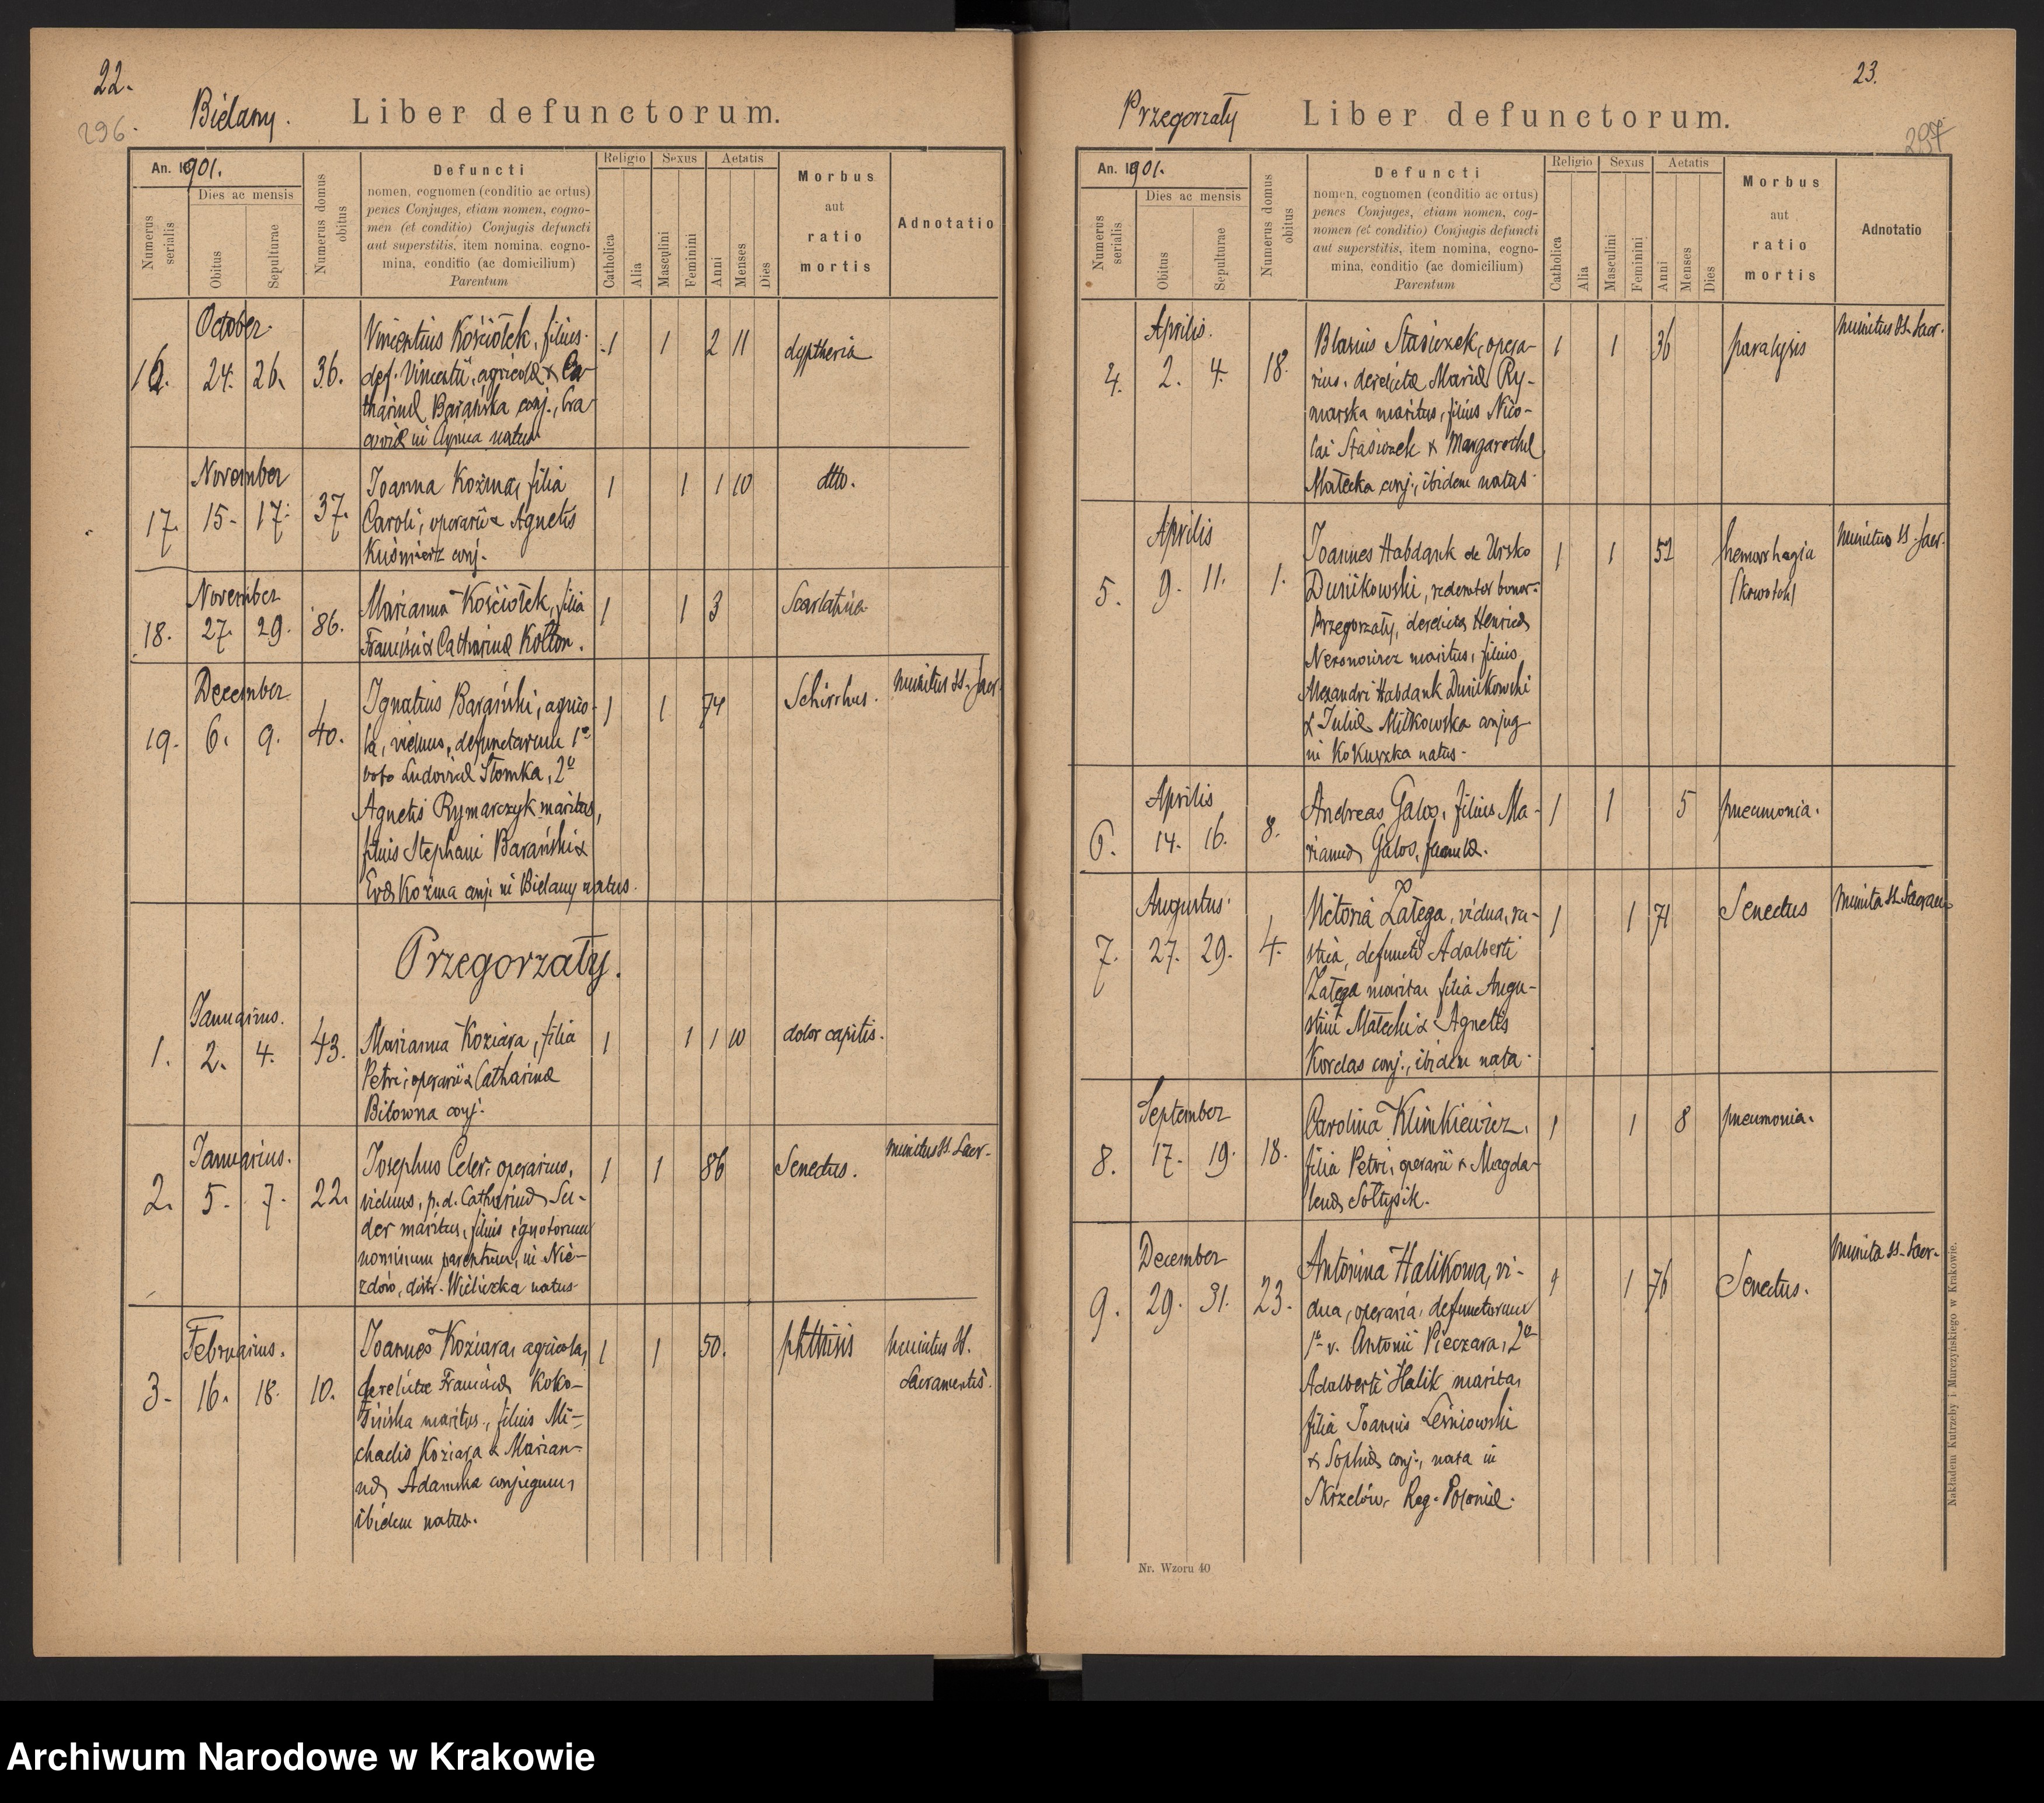 22.
296.
Bielany.
Liber defunctorum.
An. 1901.
Numerus serialis
Dies ac mensis
Obitus
Sepulturae
Numerus domus obitus
Defuncti
nomen, cognomen (conditio ac ortus)
penes Conjuges, etiam nomen, cogno-
men (et conditio) Conjugis defuncti
aut superstitis, item nomina, cogno-
mina, conditio (ac domicilium)
Parentum
Religio
Catholica
Alia
Sexus
Masculini
Feminini
Aetatis
Anni
Menses
Dies
Morbus
aut
ratio
mortis
Adnotatio
October.
16. 24. 26. 36.
Vincentius Kościółek, filius
def. Vincentii, agricolæ & Ca-
tharinæ Barańska conj., Cra-
coviæ in natus
1 1 2 11 dyptheria
November
17. 15. 17. 37.
Joanna Koźma, filia
Caroli, operarii & Agnetis
Kuśnierz conj.
1 1 1 10 dtto.
November
18. 27. 29. 86.
Marianna Kościołek, filia
Francisci & Catharinæ Kołton.
1 1 3 Scarlatina
December
19. 6. 9. 40.
Ignatius Barański, agrico-
la, viduus, defunctarum 1º
voto Ludovicæ Słomka, 2º
Agnetis Rymarczyk maritus,
filius Stephani Barański &
Evæ Koźma conj. in Bielany natus.
1 1 74 Schirrhus.
munitus SS. Sacr.
Przegorzały.
Januarius.
1. 2. 4. 43.
Marianna Koziara, filia
Petri, operarii & Catharinæ
Bitowna conj.
1 1 1 10 dolor capitis.
Januarius.
2. 5. 7. 22.
Josephus Celer, operarius,
viduus, p. d. Catharinæ Su-
der maritus, filius ignotorum
nominum parentum, in Nie-
zdów, distr. Wieliczka natus
1 1 86 Senectus.
munitus SS. Sacr.
Februarius.
3. 16. 18. 10.
Joannes Koziara, agricola,
derelictæ Franciscæ Koko-
sińska maritus, filius Mi-
chaelis Koziara & Marian-
næ Adamska conjugum,
ibidem natus.
1 1 50. phthisis
munitus SS.
Sacramentis.
23.
297
Przegorzały
Liber defunctorum.
An. 1901.
Numerus serialis
Dies ac mensis
Obitus
Sepulturae
Numerus domus obitus
Defuncti
nomen, cognomen (conditio ac ortus)
penes Conjuges, etiam nomen, cog-
nomen (et conditio) Conjugis defuncti
aut superstitis, item nomina, cogno-
mina, conditio (ac domicilium)
Parentum
Religio
Catholica
Alia
Sexus
Masculini
Feminini
Aetatis
Anni
Menses
Dies
Morbus
aut
ratio
mortis
Adnotatio
Aprilis.
4. 2. 4. 18.
Blasius Stasiczek, opera-
rius, derelictæ Mariæ Ry-
marska maritus, filius Nico-
lai Stasiczek & Margarethæ
Małecka conj., ibidem natus.
1 1 36 paralysis
munitus SS. Sacr.
Aprilis
5. 9. 11. 1.
Joannes Habdank de Ursko
Dunikowski, redemtor bonor.
Przegorzały, derelictæ Henricæ
maritus, filius
Alexandri Habdank Dunikowski
& Juliæ Miłkowska conjug
in Kokuszka natus.
1 1 52 hemorrhagia
(krwotok)
munitus SS. Sacr.
Aprilis
6. 14. 16. 8.
Andreas Galos, filius Ma-
riannæ Galos, famulæ.
1 1 5 pneumonia.
Augustus
7. 27. 29. 4.
Victoria Załęga, vidua, ru-
stica, defuncti Adalberti
Załęga marita, filia Augu-
stini Małecki & Agnetis
Kordas conj., ibidem nata.
1 1 71 Senectus
munita SS. Sacram.
September
8. 17. 19. 18.
Carolina Klimkiewicz,
filia Petri, operarii & Magda-
lenæ Sołtysik.
1 1 8 pneumonia.
December
9. 29. 31. 23.
Antonina Halikowa, vi-
dua, operaria, defunctorum
1º v. Antonii Pieczara, 2º
Adalberti Halik marita,
filia Joannis Leśniowski
& Sophiæ conj., nata in
Skrzelów, Reg. Poloniæ.
1 1 76 Senectus.
munita SS. Sacr.
Nr. Wzoru 40
Nakładem Kutrzeby i Murczyńskiego w Krakowie.
Archiwum Narodowe w Krakowie